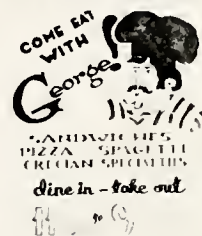 COME EAT
WITH
George!
SANDWICHES
PIZZA SPAGHETTI
GRECIAN SPECIALTIES
dine in - take out